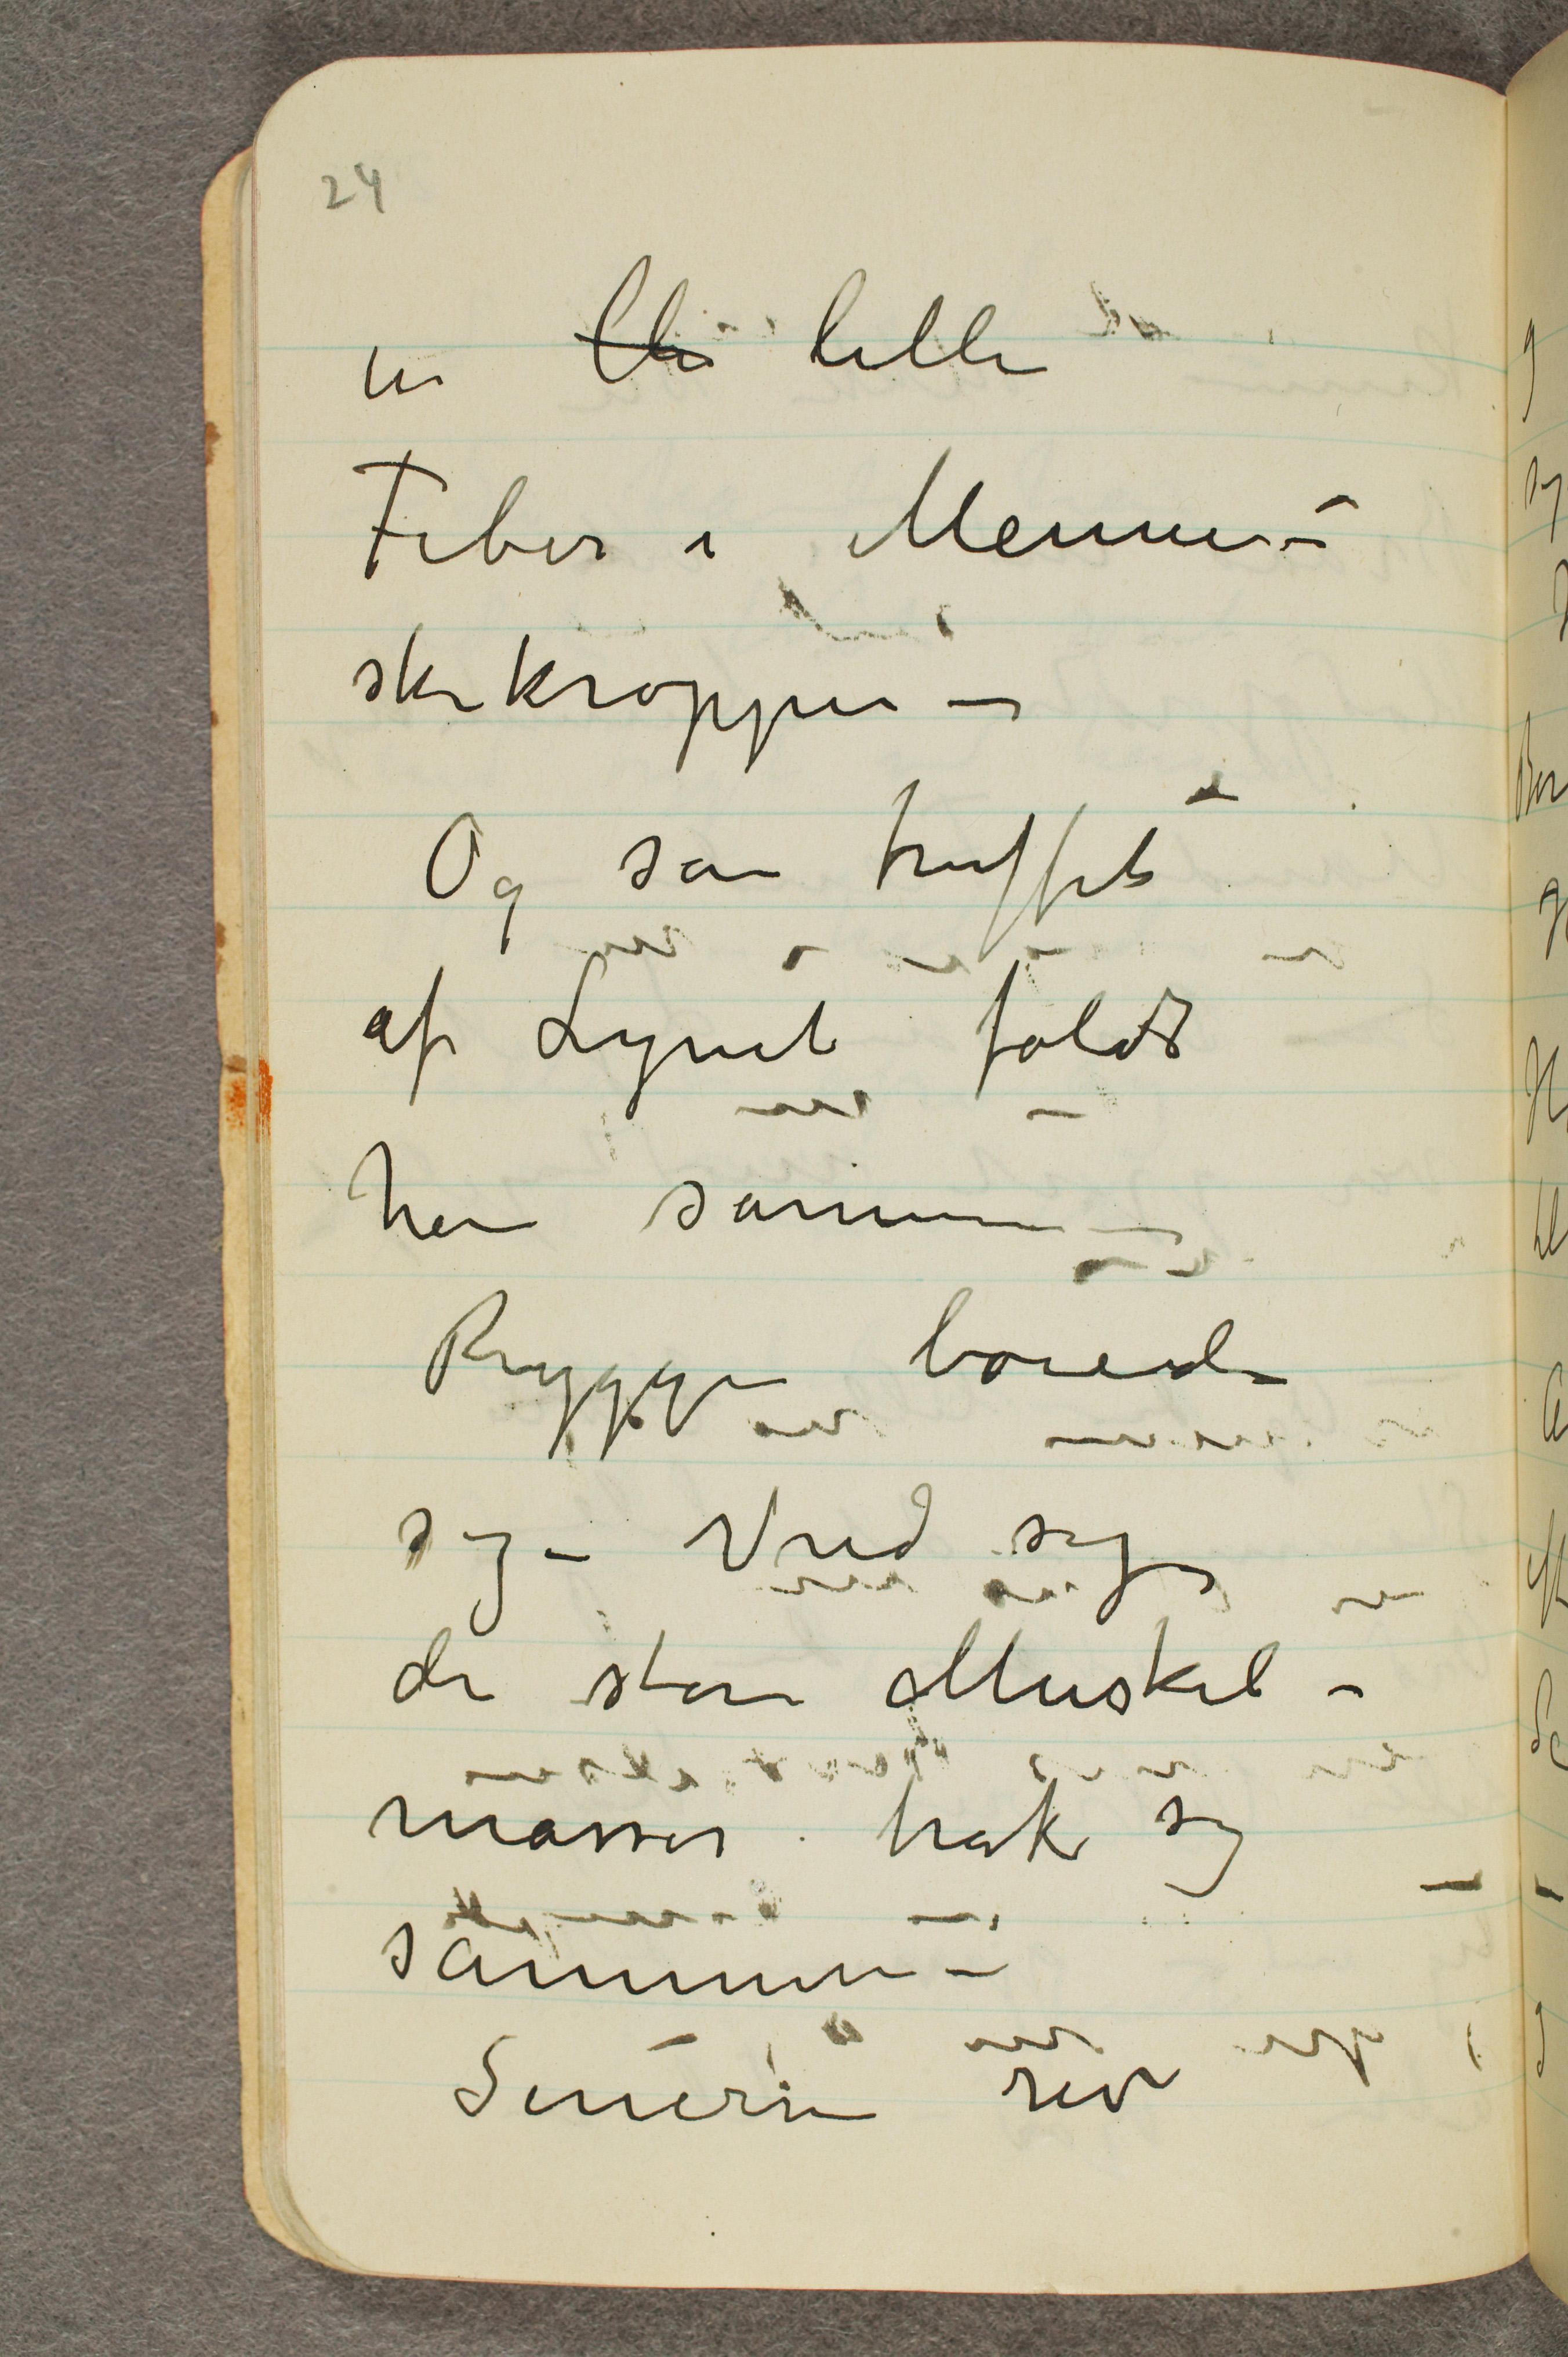 24
en ble lille
Fiber i Menne-
skekroppen –
Og som truffet
af Lynet foldt
han sammen –
Ryggen boiede
sig – Vred sig
de store Muskel-
masser trak sig
sammen –
Senerne rev